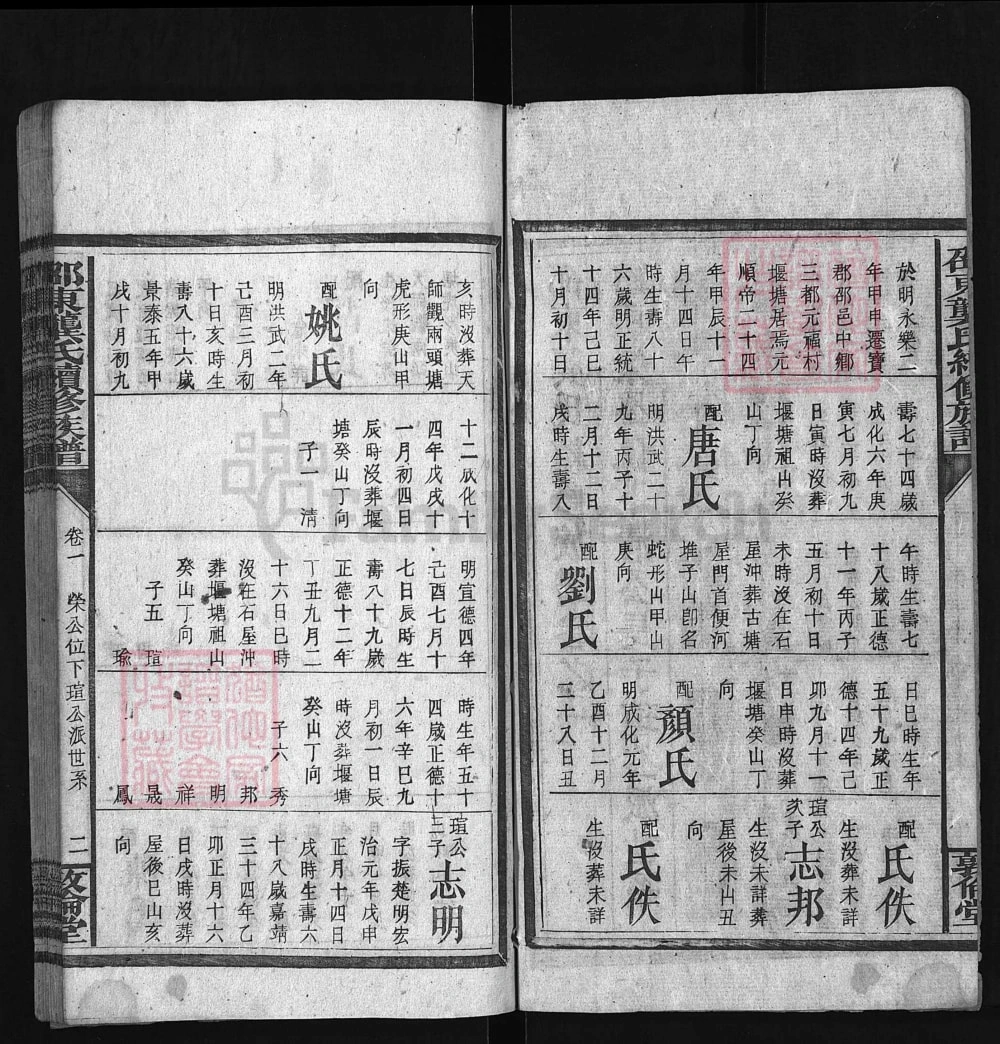 於明永樂二
年甲申遷寶
郡邵邑中鄉
三都元福村
堰塘居焉元
順帝二十四
年甲辰十一
月十四日午
時生壽八十
六歲明正統
十四年己巳
十月初十日
壽七十四歲
成化六年庚
寅七月初九
日寅時沒葬
堰塘祖山癸
山丁向
配唐氏
明洪武二十
九年丙子十
二月十二日
戌時生壽八
午時生壽七
十八歲正德
十一年丙子
五月初十日
未時沒在石
屋沖葬古塘
屋門首便河
堆子山卽名
蛇形出甲山
庚向
配劉氏
日巳時生年
五十九歲正
德十四年己
卯九月十一
日申時沒葬
堰塘癸山丁
向
配顏氏
明成化元年
乙酉十二月
二十八日丑
配氏佚
生沒葬未詳
瑄公次子志邦
生沒未詳葬
屋後未山丑
向
配氏佚
生沒葬未詳
亥時沒葬天
師觀兩頭塘
虎形庚山甲
向
配姚氏
明洪武二年
己酉三月初
十日亥時生
壽八十六歲
景泰五年甲
戌十月初九
十二成化十
四年戊戌十
一月初四日
辰時沒葬堰
塘癸山丁向
子一 清
明宣德四年
己酉七月十
七日辰時生
壽八十九歲
正德十二年
丁丑九月二
十六日巳時
沒在石屋沖
葬堰塘祖山
癸山丁向
子五 瑄
瑜
時生年五十
四歲正德十
六年辛巳九
月初一日辰
時沒葬堰塘
癸山丁向
子六 秀
邦
明
祥
晟
鳳
瑄公三子志明
字振楚明宏
治元年戊申
正月十四日
戌時生壽六
十八歲嘉靖
三十四年乙
卯正月十六
日戌時沒葬
屋後巳山亥
向
邵東龔氏續修族譜
卷一 榮公位下瑄公派世系 二
敦倫堂